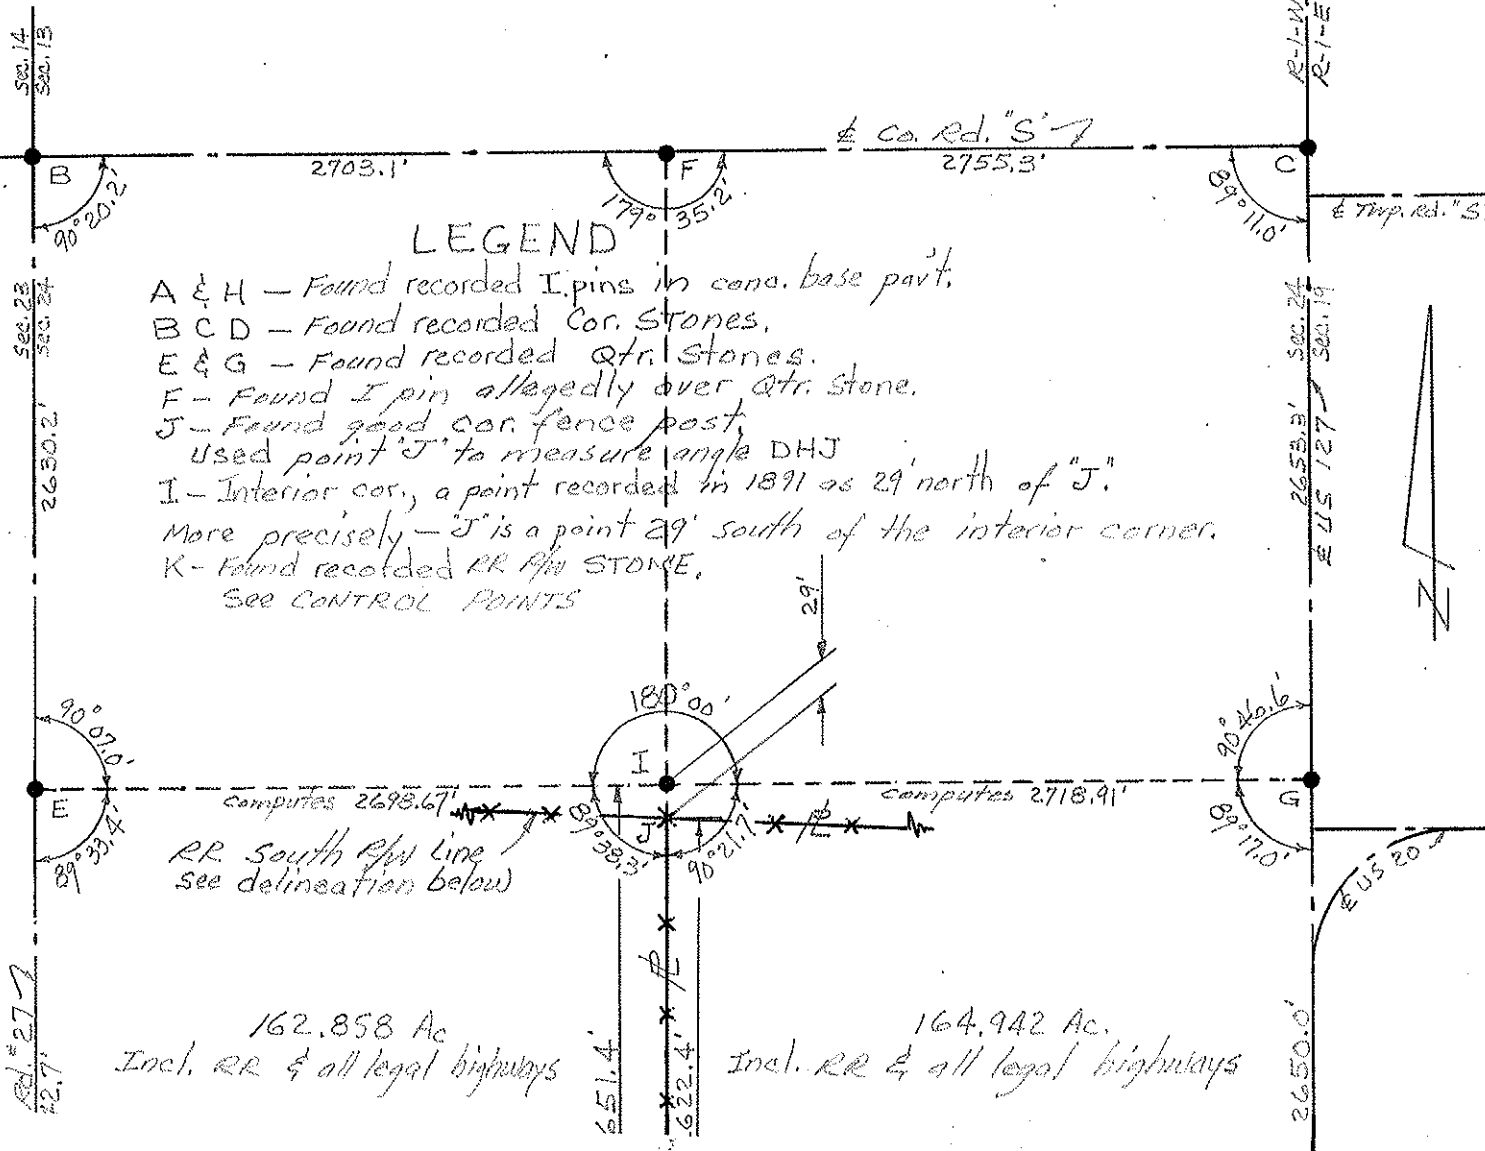 Sec. 14
Sec. 13
R-1-W
R-1-E
℄ Co. Rd. "S"
B
2703.1'
F
2755.3'
C
90°20.2'
179° 35.2'
89°11.0'
℄ Twp. Rd. "S
LEGEND
A & H — Found recorded I.pins in conc. base pav't.
B C D — Found recorded Cor. Stones.
E & G — Found recorded Qtr. Stones.
F - Found I pin allegedly over Qtr. Stone.
J - Found good cor. fence post.
Used point "J" to measure angle DHJ
I - Interior cor., a point recorded in 1891 as 29' north of "J".
More precisely — "J" is a point 29' south of the interior corner.
K - Found recorded RR R/W STONE.
See CONTROL POINTS
Sec. 23
Sec. 24
2630.2'
Sec. 24
Sec. 19
2653.3'
℄ US 127
N
29'
90°07.0'
180°00'
90°46.6'
I
E
computes 2698.67'
computes 2718.91'
G
89°33.4'
89°38.3'
J
90°21.7'
89°17.0'
℄ US 20
RR South R/W Line
See delineation below
PL
PL
Rd. #27
22.7'
162.858 Ac
Incl. RR & all legal highways
651.4'
622.4'
164.942 Ac.
Incl. RR & all legal highways
2650.0'